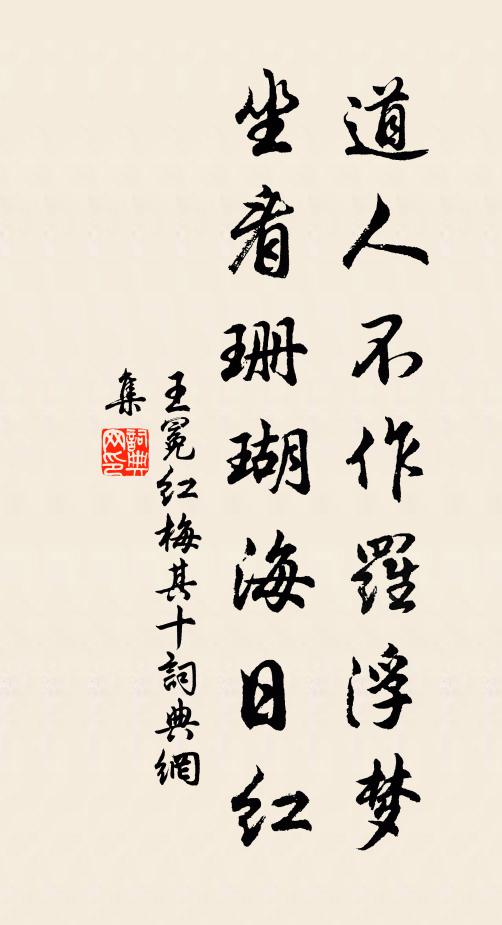 道人不作羅浮梦
坐看珊瑚海日红
王冕红梅其十詞典網
集
詞典
网印